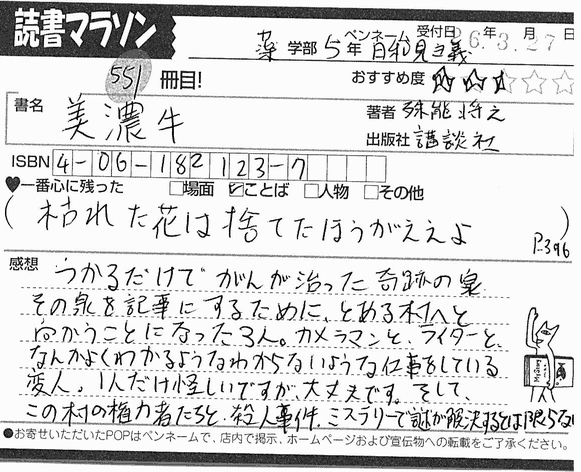 読書マラソン
薬 学部 5年 ペンネーム 日和見主義 受付日 26年3月27日
551 冊目! おすすめ度 ☆☆☆☆☆
書名 美濃牛
著者 殊能将之
出版社 講談社
ISBN 4-06-182123-7
♥一番心に残った □場面 ☑ことば □人物 □その他
(枯れた花は捨てたほうがええよ P.396)
感想 うかるだけでがんが治った奇跡の泉
その泉を記事にするために、とある村へと
向かうことになった3人。カメラマンと、ライターと、
なんかよくわかるようなわからないような仕事をしている
変人。1人だけ怪しいですが、大丈夫です。そして、
この村の権力者たちと、殺人事件。ミステリーで謎が解決するとは限らない
●お寄せいただいたPOPはペンネームで、店内で掲示、ホームページおよび宣伝物への転載をご了承ください。